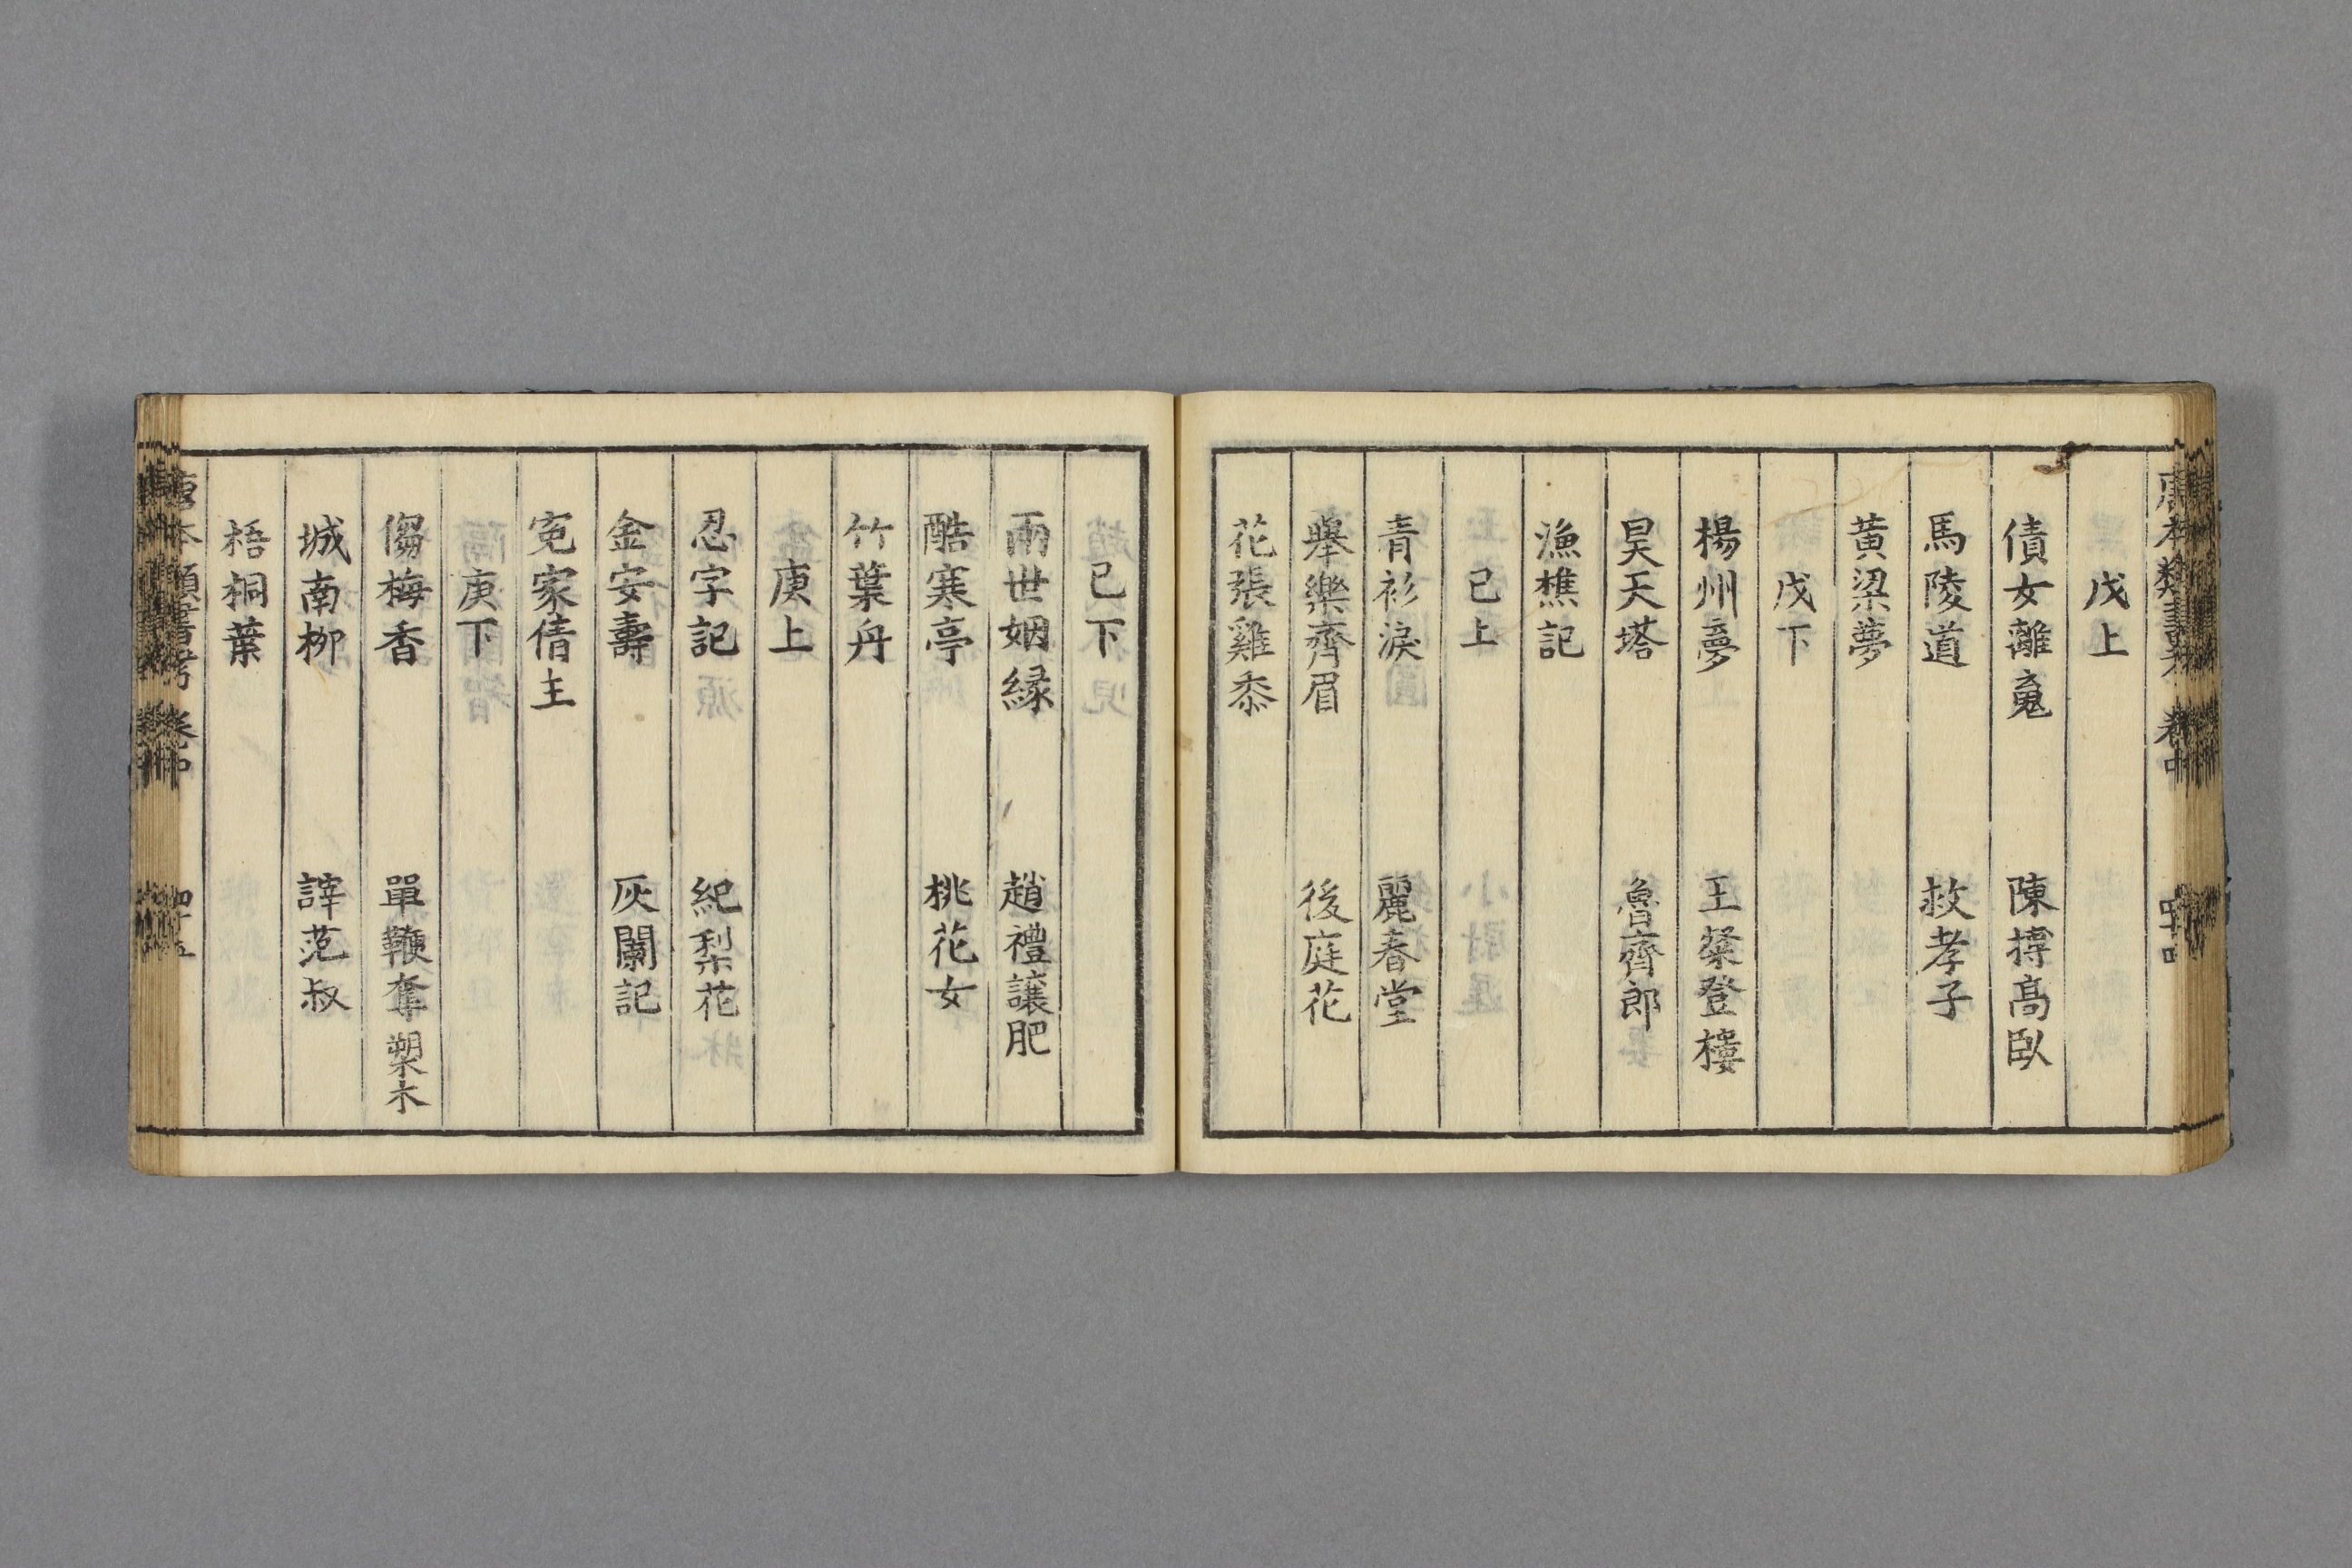 唐本類書考 卷中
戊上
債女離䰟 陳摶高臥
馬陵道 救孝子
黄梁夢
戊下
楊州夢 王粲登樓
昊天塔 魯齋郎
漁樵記
己上
青衫淚 麗春堂
舉樂齊眉 後庭花
花張雞黍
己下
兩世姻緣 趙禮讓肥
酷寒亭 桃花女
竹葉舟
庚上
忍字記 紀梨花
金安壽 灰闌記
寃家債主
庚下
㑳梅香 單鞭奪槊木
城南柳 誶范叔
梧桐葉
唐本類書考 卷中 四十五